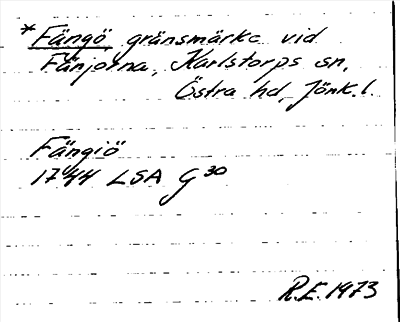 *Fängö gränsmärke vid
Fänjorna, Karlstorps sn,
Östra hd, Jönk. l.
Fängiö
1744 LSA G 30
R.E. 1973